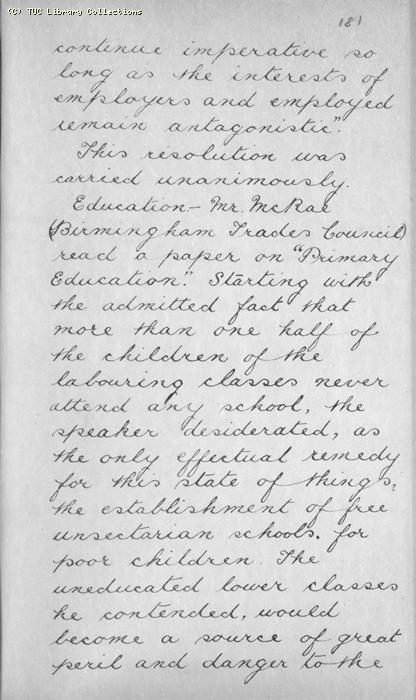 (C) TUC Library Collections
181
continue imperative so
long as the interests of
employers and employed
remain antagonistic".
This resolution was
carried unanimously.
Education - Mr. McRae
(Birmingham Trades Council)
read a paper on "Primary
Education." Starting with
the admitted fact that
more than one half of
the children of the
labouring classes never
attend any school, the
speaker desiderated, as
the only effectual remedy
for this state of things,
the establishment of free
unsectarian schools. for
poor children. The
uneducated lower classes
he contended, would
become a source of great
peril and danger to the